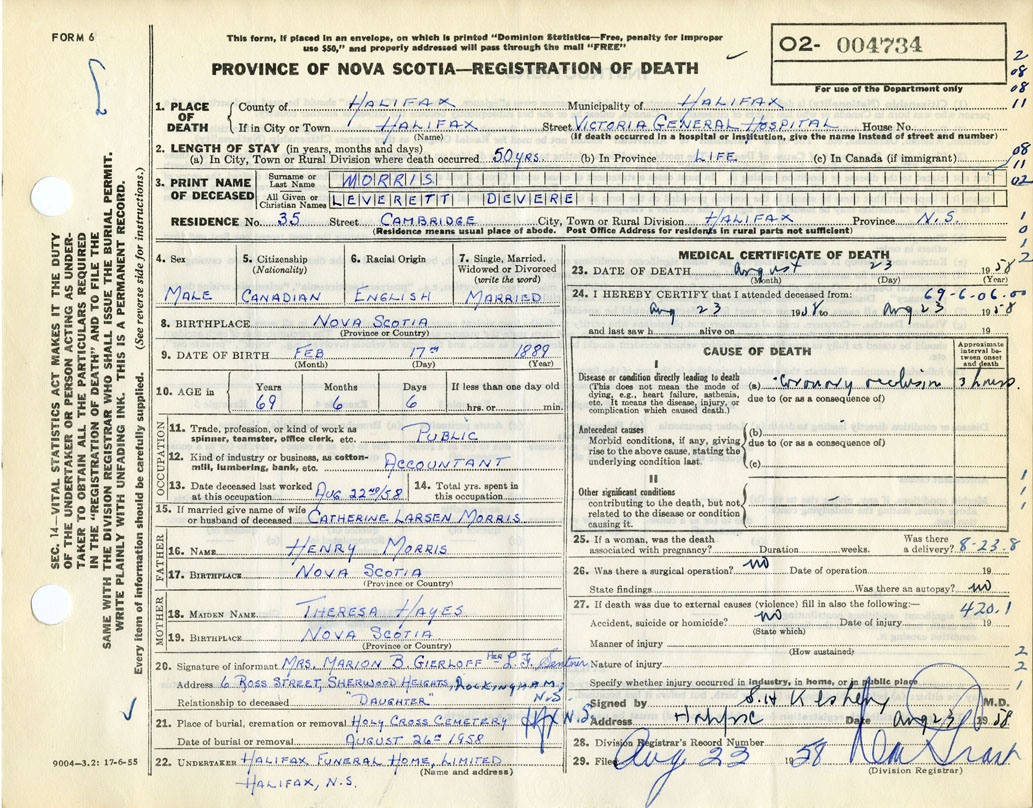 FORM 6
This form, if placed in an envelope, on which is printed "Dominion Statistics—Free, penalty for improper
use $50," and properly addressed will pass through the mail "FREE"
O2- 004734
For use of the Department only
PROVINCE OF NOVA SCOTIA—REGISTRATION OF DEATH
2
08
08
11
08
11
02
1
0
1
2
1. PLACE OF DEATH County of HALIFAX Municipality of HALIFAX
If in City or Town HALIFAX Street VICTORIA GENERAL HOSPITAL House No.
(Name) (If death occurred in a hospital or institution, give the name instead of street and number)
2. LENGTH OF STAY (in years, months and days)
(a) In City, Town or Rural Division where death occurred 50 yrs. (b) In Province LIFE (c) In Canada (if immigrant)
3. PRINT NAME OF DECEASED
Surname or Last Name MORRIS
All Given or Christian Names LEVERETT DEVERE
RESIDENCE No. 35 Street CAMBRIDGE City, Town or Rural Division HALIFAX Province N.S.
(Residence means usual place of abode. Post Office Address for residents in rural parts not sufficient)
4. Sex 5. Citizenship (Nationality) 6. Racial Origin 7. Single, Married, Widowed or Divorced (write the word)
MALE CANADIAN ENGLISH MARRIED
8. BIRTHPLACE NOVA SCOTIA
(Province or Country)
9. DATE OF BIRTH FEB 17TH 1889
(Month) (Day) (Year)
10. AGE in Years Months Days If less than one day old
69 6 6 hrs. or min.
OCCUPATION
11. Trade, profession, or kind of work as
spinner, teamster, office clerk, etc. PUBLIC
12. Kind of industry or business, as cotton-
mill, lumbering, bank, etc. ACCOUNTANT
13. Date deceased last worked at this occupation AUG 22ND/58 14. Total yrs. spent in this occupation
15. If married give name of wife
or husband of deceased CATHERINE LARSEN MORRIS
FATHER
16. NAME HENRY MORRIS
17. BIRTHPLACE NOVA SCOTIA
(Province or Country)
MOTHER
18. MAIDEN NAME THERESA HAYES
19. BIRTHPLACE NOVA SCOTIA
(Province or Country)
20. Signature of informant MRS. MARION B. GIERLOFF PER L.F.
Address 6 ROSS STREET, SHERWOOD HEIGHTS, ROCKINGHAM, N.S.
Relationship to deceased "DAUGHTER"
21. Place of burial, cremation or removal HOLY CROSS CEMETERY HFX N.S.
Date of burial or removal AUGUST 26TH 1958
22. UNDERTAKER HALIFAX FUNERAL HOME, LIMITED
(Name and address)
HALIFAX, N.S.
9004—3.2: 17-6-55
MEDICAL CERTIFICATE OF DEATH
23. DATE OF DEATH August 23 1958
(Month) (Day) (Year)
24. I HEREBY CERTIFY that I attended deceased from: 69-6-06.00
Aug 23 1958 to Aug 23 1958
and last saw h alive on 19
CAUSE OF DEATH
Approximate interval between onset and death
I
Disease or condition directly leading to death
(This does not mean the mode of
dying, e.g., heart failure, asthenia,
etc. It means the disease, injury, or
complication which caused death.)
(a) Coronary occlusion 3 hours.
due to (or as a consequence of)
Antecedent causes
Morbid conditions, if any, giving
rise to the above cause, stating the
underlying condition last.
(b)
due to (or as a consequence of)
(c)
II
Other significant conditions
contributing to the death, but not
related to the disease or condition
causing it.
1
1
25. If a woman, was the death
associated with pregnancy? Duration weeks. Was there a delivery? 8-23.8
26. Was there a surgical operation? no Date of operation 19
State findings Was there an autopsy? no
27. If death was due to external causes (violence) fill in also the following:— 420.1
Accident, suicide or homicide? no Date of injury 19
(State which)
Manner of injury
(How sustained)
Nature of injury
Specify whether injury occurred in industry, in home, or in public place
2
2
1
Signed by M.D.
Address Halifax Date Aug 23 1958
28. Division Registrar's Record Number
29. Filed Aug 23 1958
(Division Registrar)
SEC. 14—VITAL STATISTICS ACT MAKES IT THE DUTY
OF THE UNDERTAKER OR PERSON ACTING AS UNDER-
TAKER TO OBTAIN ALL THE PARTICULARS REQUIRED
IN THE "REGISTRATION OF DEATH" AND TO FILE THE
SAME WITH THE DIVISION REGISTRAR WHO SHALL ISSUE THE BURIAL PERMIT.
WRITE PLAINLY WITH UNFADING INK. THIS IS A PERMANENT RECORD.
Every item of information should be carefully supplied. (See reverse side for instructions.)